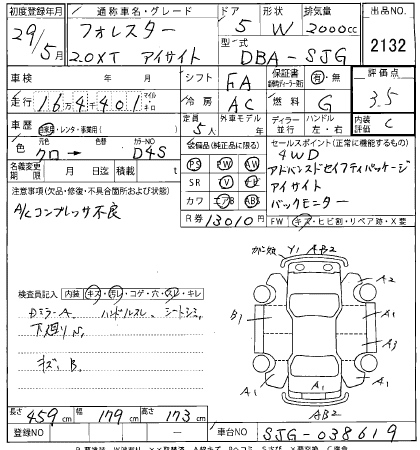 初度登録年月 通称車名・グレード ドア 形状 排気量 出品NO
29/5月 フォレスター 5 W 2000cc 2132
2.0XT アイサイト 型式 DBA-SJG
車検 年 月 シフト FA 保証書 有・無 燃料 G 評価点 3.5
走行 16万4千401 マイル キロ 冷房 AC
車歴 自家用・レンタ・事業用( ) 定員 5人 外車モデル 年 ディーラー 並行 ハンドル 左・右 内装評価 C
色 クロ→ カラーNO D4S
装備品(純正品に限る) セールスポイント(正常に機能するもの)
PS PW AW
SR TV ナビ
カワ エアB ABS
4WD
アドバンスドセイフティパッケージ
アイサイト
バックモニター
名義変更期限 月 日迄 積載 t
R券 13010円
FW キズ・ヒビ割・リペア跡・X要
注意事項(欠品・修復・不具合箇所および状態)
A/Cコンプレッサ不良
検査員記入 内装 キズ・汚レ・コゲ・穴・スレ・キレ
Dミラー A、 ハンドルスレ、 シートシミ、
下廻りS、
キズ、B、
Y1 AB2
A2
B1
A1
A3
A1
A1
A1
AB2
長さ 459cm 幅 179cm 高さ 173cm
登録NO 車台NO SJG-038619